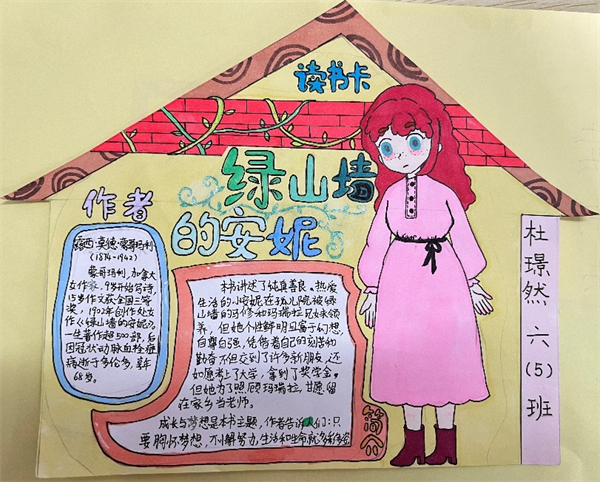 读书卡
绿山墙
的安妮
作者
露西·莫德·蒙哥玛利
(1874-1942)
蒙哥玛利,加拿大
女作家,9岁开始写诗,
15岁作文获全国三等
奖,1902年创作处女
作《绿山墙的安妮》,
一生著作超500部,后
因冠状动脉血栓症
病逝于多伦多,享年
68岁。
本书讲述了纯真善良、热爱
生活的小安妮在孤儿院被绿
山墙的马修和玛瑞拉兄妹领
养,但她个性鲜明且富于幻想,
自尊自强,凭借着自己的刻苦和
勤奋不但交到了许多新朋友,还
如愿考上了大学,拿到了奖学金。
但她为了照顾玛瑞拉,甘愿留
在家乡当老师。
成长与梦想是本书主题,作者告诉人们:只
要胸怀梦想,不懈努力,生活和生命就多姿多彩
简介
杜璟然 六(5)班